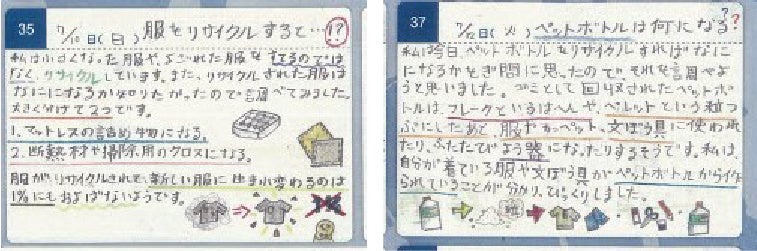 35
7/10日(日) 服をリサイクルすると…!?
私は小さくなった服や、よごれた服をすてるのでは
なく、リサイクルしています。また、リサイクルされた服は
なにになるか知りたかったので調べてみました。
大きく分けて2つです。
1.マットレスの詰め物になる。
2.断熱材や掃除用のクロスになる。
服がリサイクルされて、新しい服に生まれ変わるのは
1%にもおよばないようです。
37
7/12日(火) ペットボトルは何になる??
私は今日、ペットボトルをリサイクルすればなに
になるかとぎ問に思ったので、それを調べよ
うと思いました。ゴミとして回収されたペットボト
ルは、フレークというはへんや、ペレットという粒つ
ぶにしたあと、服やカーペット、文ぼう具に使われ
たり、ふたたびよう器になったりするそうです。私は、
自分が着ている服や文ぼう具がペットボトルから作
られていることが分かり、びっくりしました。